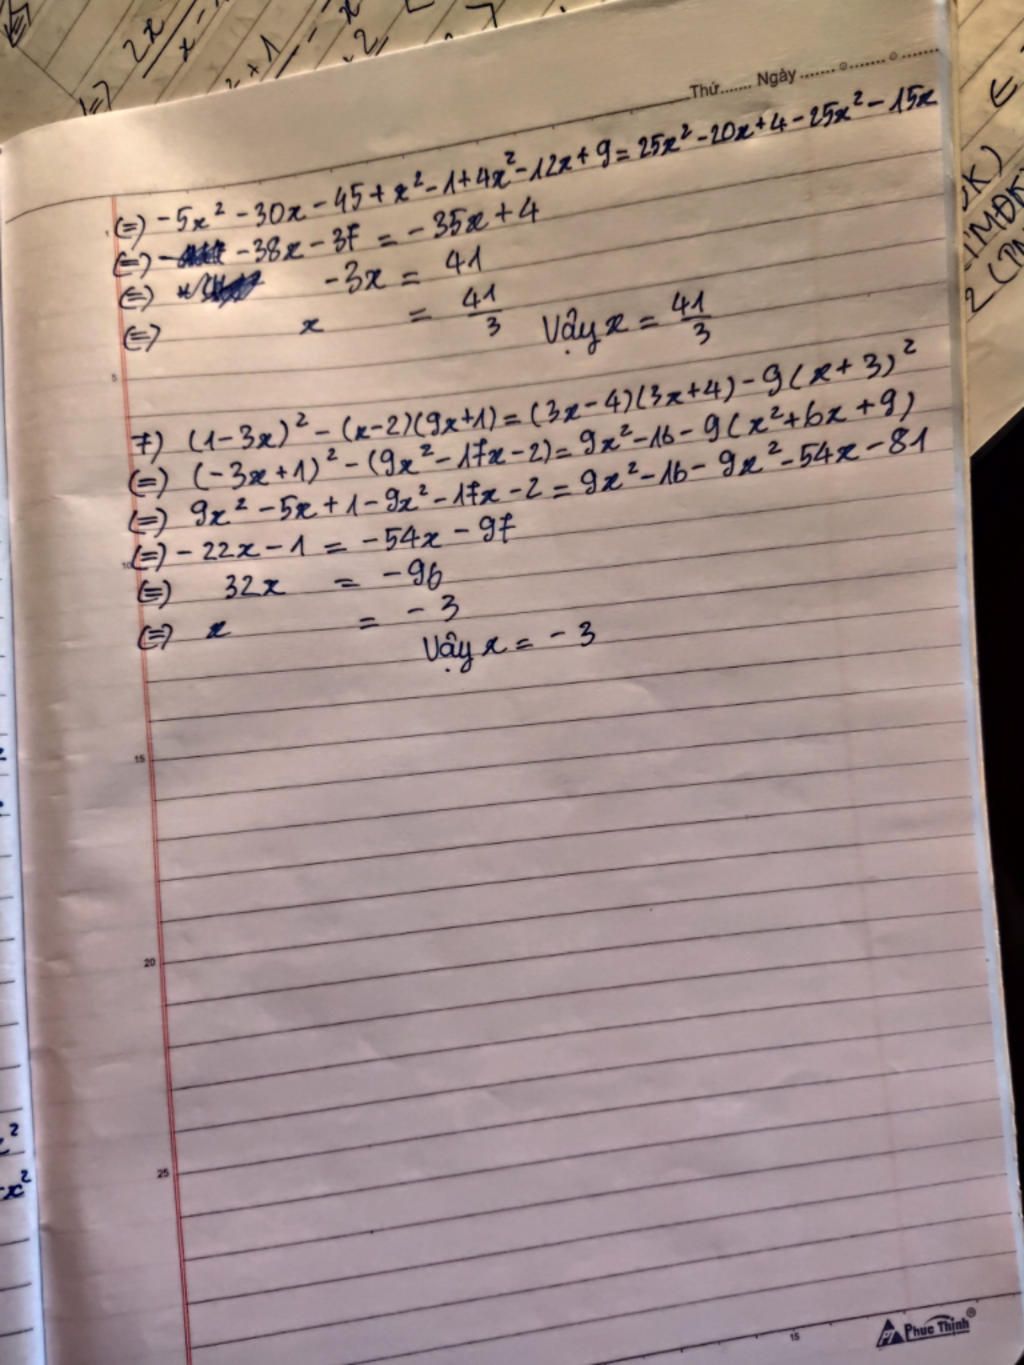 Thứ....... Ngày ....... ....... .......
(=) -5x² -30x - 45 + x² - 1 + 4x² - 12x + 9 = 25x² - 20x + 4 - 25x² - 15x
(=) - -38x - 37 = -35x + 4
(=) -3x = 41
(=) x = 41/3 Vậy x = 41/3
5
7) (1-3x)² - (x-2)(9x+1) = (3x-4)(3x+4) - 9(x+3)²
(=) (-3x+1)² - (9x² - 17x - 2) = 9x² - 16 - 9(x² + 6x + 9)
(=) 9x² - 5x + 1 - 9x² - 17x - 2 = 9x² - 16 - 9x² - 54x - 81
(=) - 22x - 1 = -54x - 97
10
(=) 32x = -96
(=) x = -3
Vậy x = -3
15
20
25
15
Phuc Thinh®